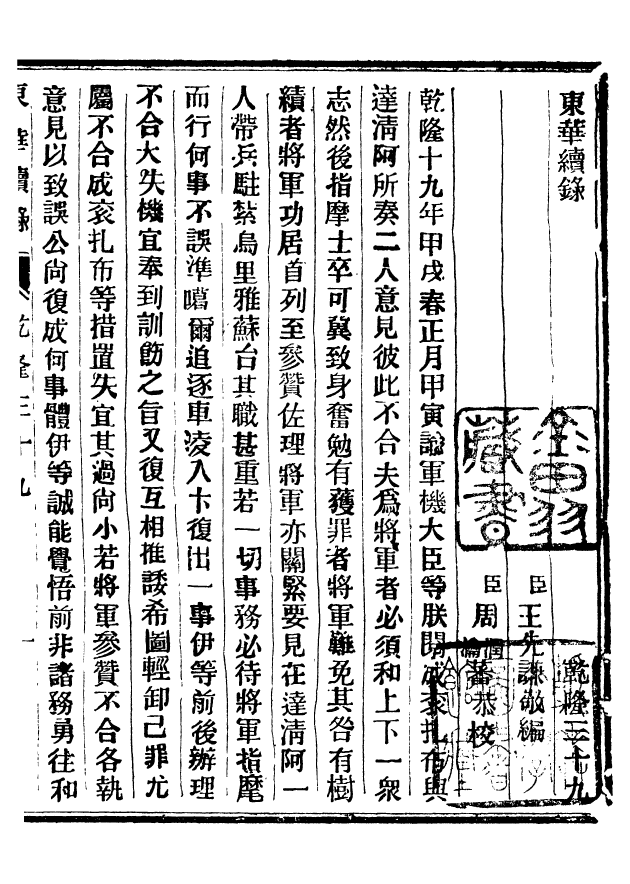 東華續錄
乾隆三十九
臣王先謙敬編
臣周潤蕃恭校
乾隆十九年甲戌春正月甲寅諭軍機大臣等朕閱成衮扎布與
達淸阿所奏二人意見彼此不合夫爲將軍者必須和上下一衆
志然後指摩士卒可冀致身奮勉有獲罪者將軍難免其咎有樹
績者將軍功居首列至參贊佐理將軍亦關緊要見在達淸阿一
人帶兵駐紮烏里雅蘇台其職甚重若一切事務必待將軍指麾
而行何事不誤準噶爾追逐車凌入卡復出一事伊等前後辦理
不合大失機宜奉到訓飭之旨又復互相推諉希圖輕卸己罪尤
屬不合成衮扎布等措置失宜其過尚小若將軍參贊不合各執
意見以致誤公尚復成何事體伊等誠能覺悟前非諸務勇往和
東華續錄 乾隆三十九 一